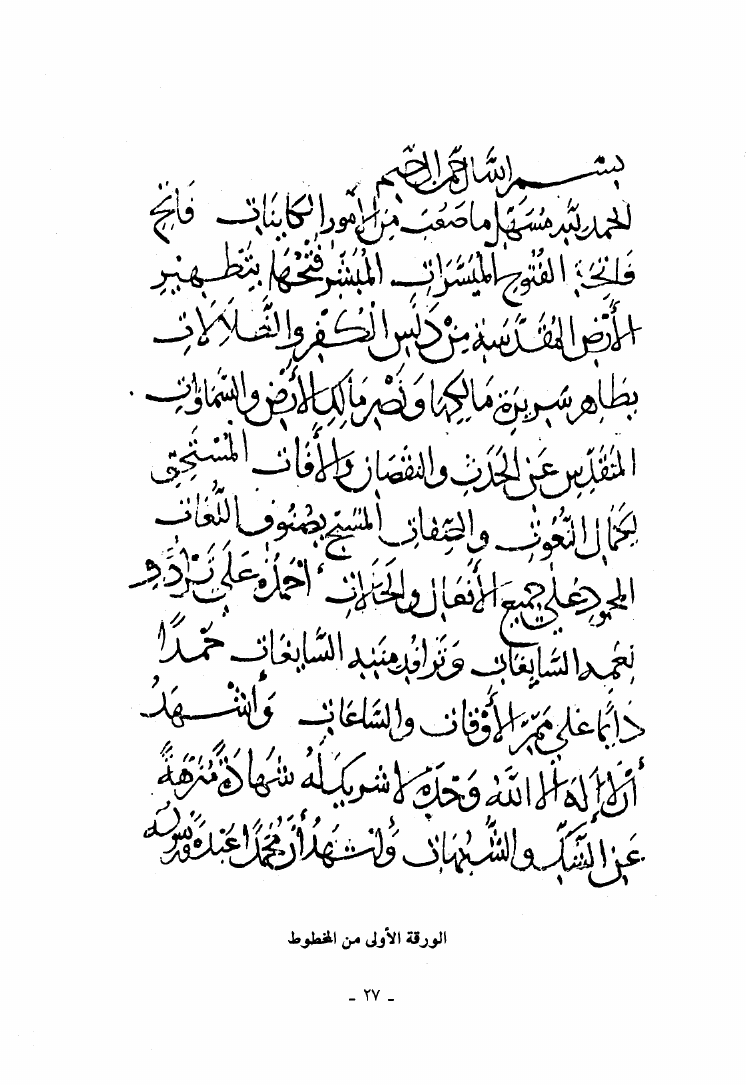 بسم الله الرحمن الرحيم
الحمد لله مسهل ما صعب من الأمور الكاينات فاتح
فاتحة الفتوح الميسرات المبشر فتحها بتطهير
الأرض المقدسة من دنس الكفر والضلالات
بطاهر سريرة مالكها ونصر مالك الأرض والسماوات
المتقدس عن الحدث والنقصان والآفات المستحق
لكمال النعوت والصفات المسبح بصنوف اللغات
المحمود على جميع الأفعال والحالات أحمده على ترادف
نعمه السابغات وترافد مننه السابغات حمدًا
دايمًا على ممر الأوقات والساعات وأشهد
أن لا إله إلا الله وحده لا شريك له شهادة منزهة
عن الشك والشبهات وأشهد أن محمدًا عبده ورسوله
الورقة الأولى من المخطوط
- ٢٧ -